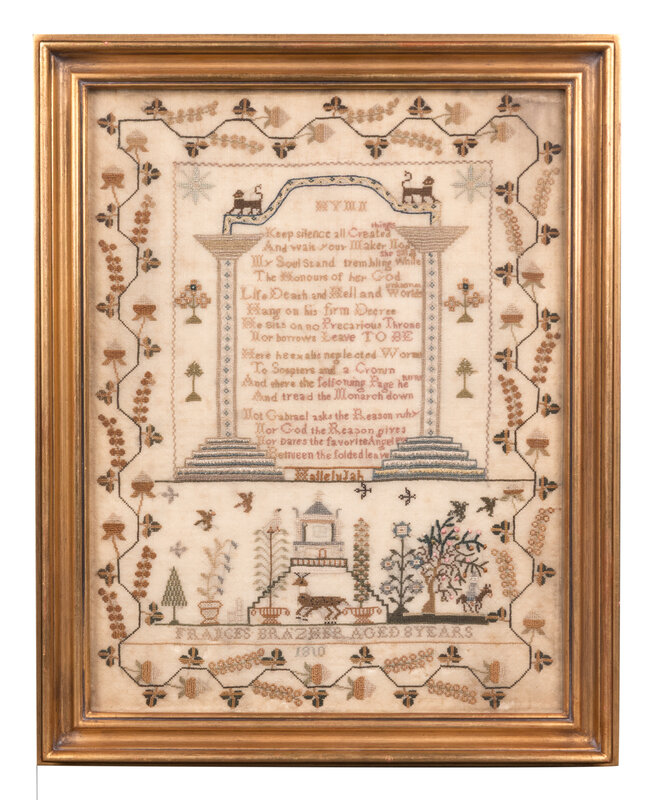 HYMN
Keep silence all Created things
And wait your Maker Nod
My Soul Stand trembling While She Sings
The Honours of her God
Life Death and Hell and Worlds unknown
Hang on his firm Decree
He Sits on no Precarious Throne
Nor borrows Leave TO BE
Here he exalts neglected Worms
To Scepters and a Crown
And there the following Page he turns
And tread the Monarch down
Not Gabrael asks the Reason why
Nor God the Reason gives
Nor Dares the favorite Angel
Between the folded leaves
Hallelujah
FRANCES BRAZHER AGED 8 YEARS
1810